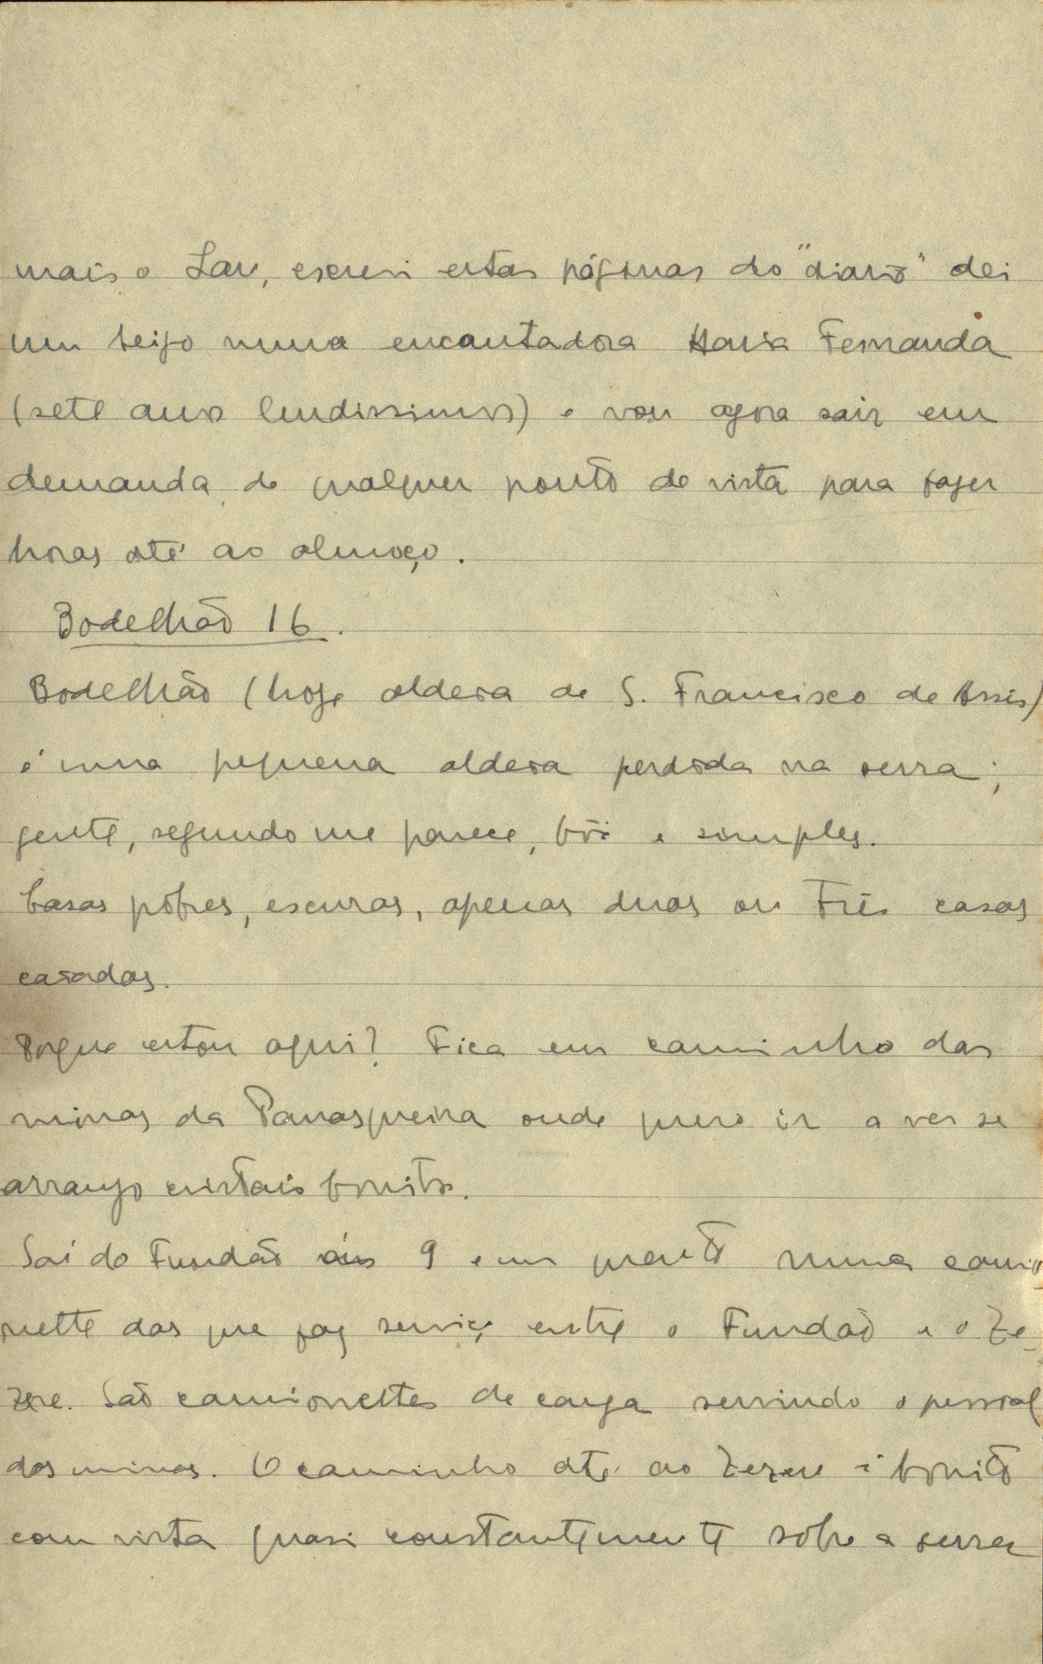 mais o Lau, escrevi estas páginas do "diario" dei
um beijo numa encantadora Maria Fernanda
(sete anos lindissimos) e vou agora sair em
demanda de qualquer ponto de vista para fazer
horas até ao almoço.
Bodelhão 16.
Bodelhão (hoje aldeia de S. Francisco de Assis)
é uma pequena aldeia perdida na serra;
gente, segundo me parece, bôa e simples.
Casas pobres, escuras, apenas duas ou três casas
caiadas.
Porque estou aqui? Fica em caminho das
minas da Panasqueira onde quero ir a ver se
arranjo cristais bonitos.
Saí do Fundão ás 9 e um quarto numa camio
nette das que faz serviço entre o Fundão e o Ze-
zere. São camionettes de carga servindo o pessoal
das minas. O caminho até ao Zezere é bonito
com vista quasi constantemente sobre a serra